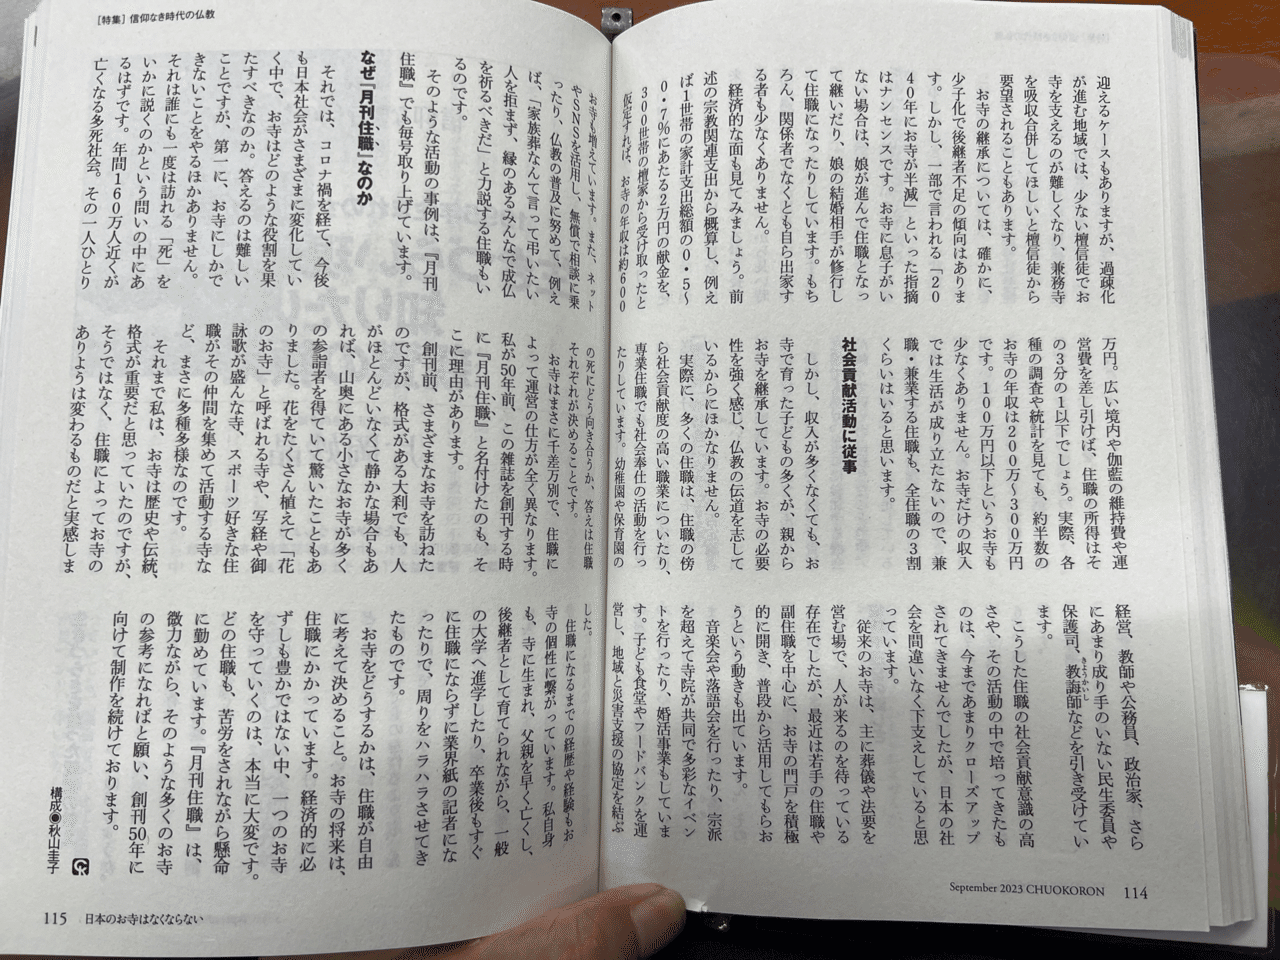 [特集] 信仰なき時代の仏教
迎えるケースもありますが、過疎化
が進む地域では、少ない檀信徒でお
寺を支えるのが難しくなり、兼務寺
を吸収合併してほしいと檀信徒から
要望されることもあります。
お寺の継承については、確かに、
少子化で後継者不足の傾向はありま
す。しかし、一部で言われる「20
40年にお寺が半減」といった指摘
はナンセンスです。お寺に息子がい
ない場合は、娘が進んで住職となっ
て継いだり、娘の結婚相手が修行し
て住職になったりしています。もち
ろん、関係者でなくとも自ら出家す
る者も少なくありません。
経済的な面も見てみましょう。前
述の宗教関連支出から概算し、例え
ば1世帯の家計支出総額の0・5〜
0・7％にあたる2万円の献金を、
300世帯の檀家から受け取ったと
仮定すれば、お寺の年収は約600
万円。広い境内や伽藍の維持費や運
営費を差し引けば、住職の所得はそ
の3分の1以下でしょう。実際、各
種の調査や統計を見ても、約半数の
お寺の年収は200万〜300万円
です。100万円以下というお寺も
少なくありません。お寺だけの収入
では生活が成り立たないので、兼
職・兼業する住職も、全住職の3割
くらいはいると思います。
社会貢献活動に従事
しかし、収入が多くなくても、お
寺で育った子どもの多くが、親から
お寺を継承しています。お寺の必要
性を強く感じ、仏教の伝道を志して
いるからにほかなりません。
実際に、多くの住職は、住職の傍
ら社会貢献度の高い職業についたり、
専業住職でも社会奉仕の活動を行っ
たりしています。幼稚園や保育園の
経営、教師や公務員、政治家、さら
にあまり成り手のいない民生委員や
保護司、教誨師などを引き受けてい
きょうかいし
ます。
こうした住職の社会貢献意識の高
さや、その活動の中で培ってきたも
のは、今まであまりクローズアップ
されてきませんでしたが、日本の社
会を間違いなく下支えしていると思
っています。
従来のお寺は、主に葬儀や法要を
営む場で、人が来るのを待っている
存在でしたが、最近は若手の住職や
副住職を中心に、お寺の門戸を積極
的に開き、普段から活用してもらお
うという動きも出ています。
音楽会や落語会を行ったり、宗派
を超えて寺院が共同で多彩なイベン
トを行ったり、婚活事業もしていま
す。子ども食堂やフードバンクを運
営し、地域と災害支援の協定を結ぶ
September 2023 CHUOKORON 114
お寺も増えています。また、ネット
やSNSを活用し、無償で相談に乗
ったり、仏教の普及に努めて、例え
ば、「家族葬なんて言って弔いたい
人を拒まず、縁のあるみんなで成仏
を祈るべきだ」と力説する住職もい
るのです。
そのような活動の事例は、『月刊
住職』でも毎号取り上げています。
なぜ『月刊住職』なのか
それでは、コロナ禍を経て、今後
も日本社会がさまざまに変化してい
く中で、お寺はどのような役割を果
たすべきなのか。答えるのは難しい
ことですが、第一に、お寺にしかで
きないことをやるほかありません。
それは誰にも一度は訪れる「死」を
いかに説くのかという問いの中にあ
るはずです。年間160万人近くが
亡くなる多死社会。その一人ひとり
の死にどう向き合うか、答えは住職
それぞれが決めることです。
お寺はまさに千差万別で、住職に
よって運営の仕方が全く異なります。
私が50年前、この雑誌を創刊する時
に『月刊住職』と名付けたのも、そ
こに理由があります。
創刊前、さまざまなお寺を訪ねた
のですが、格式がある大刹でも、人
がほとんどいなくて静かな場合もあ
れば、山奥にある小さなお寺が多く
の参詣者を得ていて驚いたこともあ
りました。花をたくさん植えて「花
のお寺」と呼ばれる寺や、写経や御
詠歌が盛んな寺、スポーツ好きな住
職がその仲間を集めて活動する寺な
ど、まさに多種多様なのです。
それまで私は、お寺は歴史や伝統、
格式が重要だと思っていたのですが、
そうではなく、住職によってお寺の
ありようは変わるものだと実感しま
した。
住職になるまでの経歴や経験もお
寺の個性に繋がっています。私自身
も、寺に生まれ、父親を早く亡くし、
後継者として育てられながら、一般
の大学へ進学したり、卒業後もすぐ
に住職にならずに業界紙の記者にな
ったりで、周りをハラハラさせてき
たものです。
お寺をどうするかは、住職が自由
に考えて決めること。お寺の将来は、
住職にかかっています。経済的に必
ずしも豊かではない中、一つのお寺
を守っていくのは、本当に大変です。
どの住職も、苦労をされながら懸命
に勤めています。『月刊住職』は、
微力ながら、そのような多くのお寺
の参考になればと願い、創刊50年に
向けて制作を続けております。
構成◉秋山圭子
115 日本のお寺はなくならない